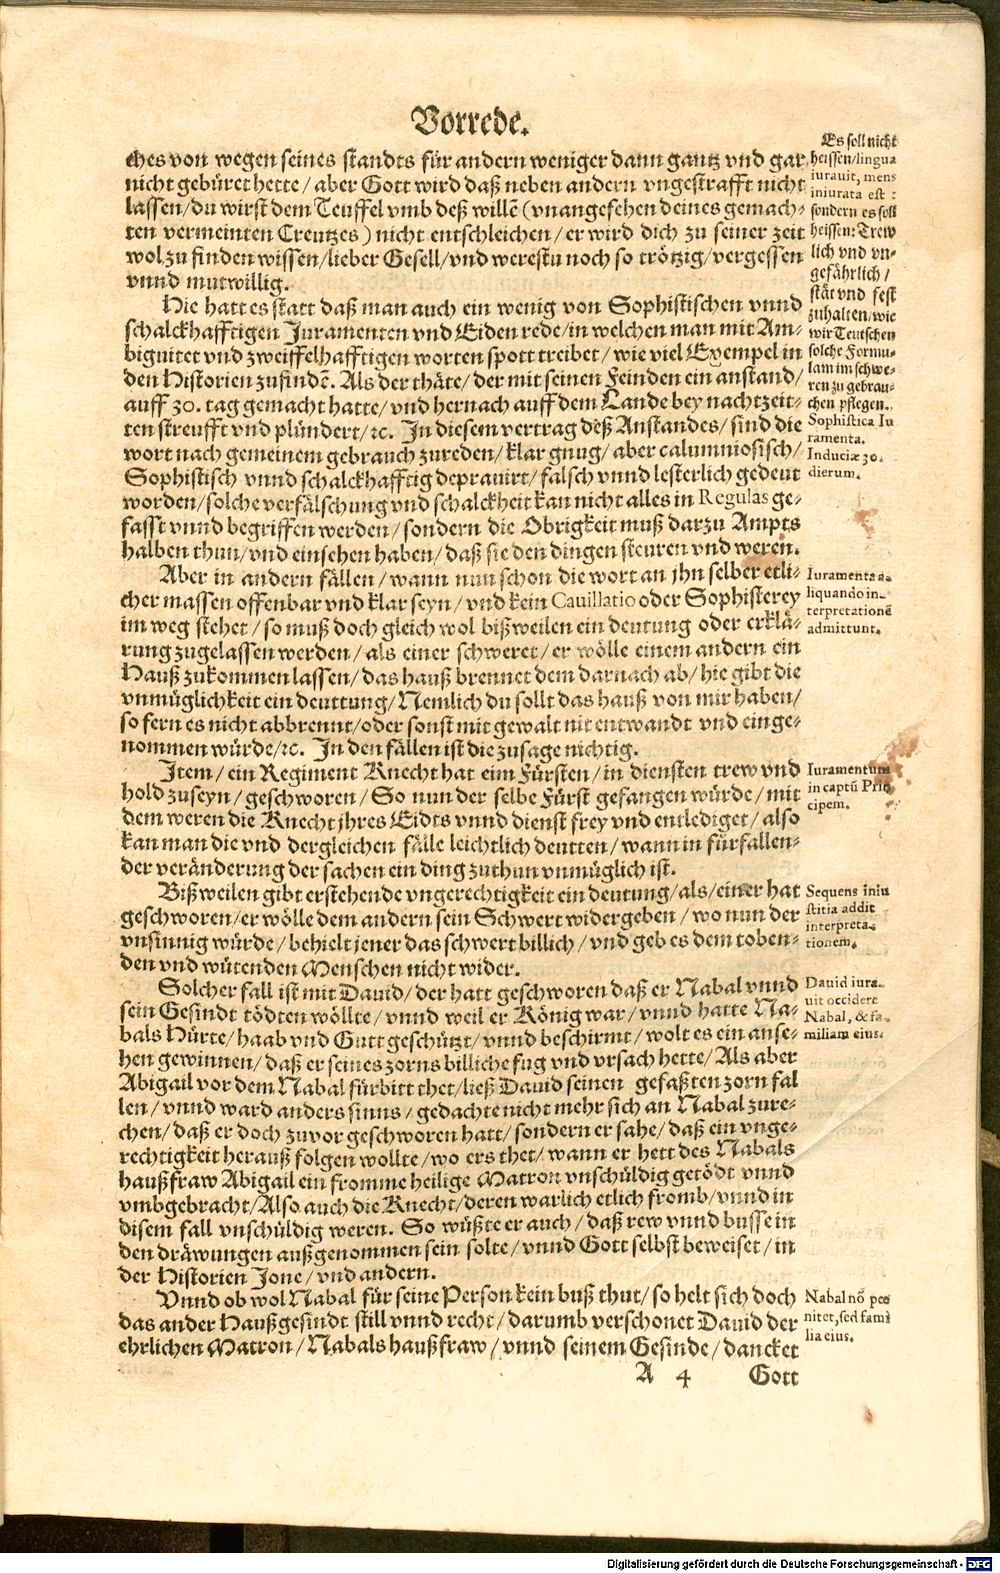 Vorrede.
ches von wegen seines standts für andern weniger dann gantz vnd gar
nicht gebüret hette / aber Gott wird daß neben andern vngestrafft nicht
lassen / du wirst dem Teuffel vmb deß willē (vnangesehen deines gemach-
ten vermeinten Creutzes) nicht entschleichen / er wird dich zu seiner zeit
wol zu finden wissen / lieber Gesell / vnd werestu noch so trötzig / vergessen
vnnd mutwillig.
Hie hatt es statt daß man auch ein wenig von Sophistischen vnnd
schalckhafftigen Juramenten vnd Eiden rede / in welchen man mit Am-
biguitet vnd zweiffelhafftigen worten spott treibet / wie viel Exempel in
den Historien zufindē. Als der thäte / der mit seinen Feinden ein anstand /
auff 30. tag gemacht hatte / vnd hernach auff dem Lande bey nachtzeit-
ten streufft vnd plündert / ꝛc. In diesem vertrag deß Anstandes / sind die
wort nach gemeinem gebrauch zureden / klar gnug / aber calumniosisch /
Sophistisch vnnd schalckhafftig deprauirt / falsch vnnd lesterlich gedeut
worden / solche verfälschung vnd schalckheit kan nicht alles in Regulas ge-
fasst vnnd begriffen werden / sondern die Obrigkeit muß darzu Ampts
halben thun / vnd einsehen haben / daß sie den dingen steuren vnd weren.
Aber in andern fällen / wann nun schon die wort an jhn selber etli-
cher massen offenbar vnd klar seyn / vnd kein Cauillatio oder Sophisterey
im weg stehet / so muß doch gleich wol bißweilen ein deutung oder erklä-
rung zugelassen werden / als einer schweret / er wölle einem andern ein
Hauß zukommen lassen / das hauß brennet dem darnach ab / hie gibt die
vnmüglichkeit ein deuttung / Nemlich du sollt das hauß von mir haben /
so fern es nicht abbrennt / oder sonst mit gewalt nit entwandt vnd einge-
nommen würde / ꝛc. In den fällen ist die zusage nichtig.
Item / ein Regiment Knecht hat eim Fürsten / in diensten trew vnd
hold zuseyn / geschworen / So nun der selbe Fürst gefangen würde / mit
dem weren die Knecht jhres Eidts vnnd dienst frey vnd entlediget / also
kan man die vnd dergleichen fälle leichtlich deutten / wann in fürfallen-
der veränderung der sachen ein ding zuthun vnmüglich ist.
Bißweilen gibt erstehende vngerechtigkeit ein deutung / als / einer hat
geschworen / er wölle dem andern sein Schwert widergeben / wo nun der
vnsinnig würde / behielt jener das schwert billich / vnd geb es dem toben-
den vnd wütenden Menschen nicht wider.
Solcher fall ist mit Dauid / der hatt geschworen daß er Nabal vnnd
sein Gesindt tödten wöllte / vnnd weil er König war / vnnd hatte Na-
bals Hürte / haab vnd Gutt geschützt / vnnd beschirmt / wolt es ein anse-
hen gewinnen / daß er seines zorns billiche fug vnd vrsach hette / Als aber
Abigail vor dem Nabal fürbitt thet / ließ Dauid seinen gefaßten zorn fal
len / vnnd ward anders sinns / gedachte nicht mehr sich an Nabal zure-
chen / daß er doch zuvor geschworen hatt / sondern er sahe / daß ein vnge-
rechtigkeit herauß folgen wollte / wo ers thet / wann er hett des Nabals
haußfraw Abigail ein fromme heilige Matron vnschüldig getödt vnnd
vmbgebracht / Also auch die Knecht / deren warlich etlich fromb / vnnd in
disem fall vnschüldig weren. So wüßte er auch / daß rew vnnd busse in
den dräwungen außgenommen sein solte / vnnd Gott selbst beweiset / in
der Historien Jone / vnd andern.
Vnnd ob wol Nabal für seine Person kein buß thut / so helt sich doch
das ander Haußgesindt still vnnd recht / darumb verschonet Dauid der
ehrlichen Matron / Nabals haußfraw / vnnd seinem Gesinde / dancket
A 4 Gott
Es soll nicht
heissen / lingua
iurauit, mens
iniurata est :
sondern es soll
heissen: Trew
lich vnd vn-
gefährlich /
stät vnd fest
zuhalten / wie
wir Teutschen
solche Formu-
lam im schwe-
ren zu gebrau-
chen pflegen.
Sophistica Iu
ramenta.
Induciæ 30.
dierum.
Iuramenta a-
liquando in-
terpretationē
admittunt.
Iuramentum
in captū Prin
cipem.
Sequens iniu
stitia addit
interpreta-
tionem.
Dauid iura-
uit occidere
Nabal, & fa-
miliam eius.
Nabal nō poe
nitet, sed fami
lia eius.
Digitalisierung gefördert durch die Deutsche Forschungsgemeinschaft - DFG